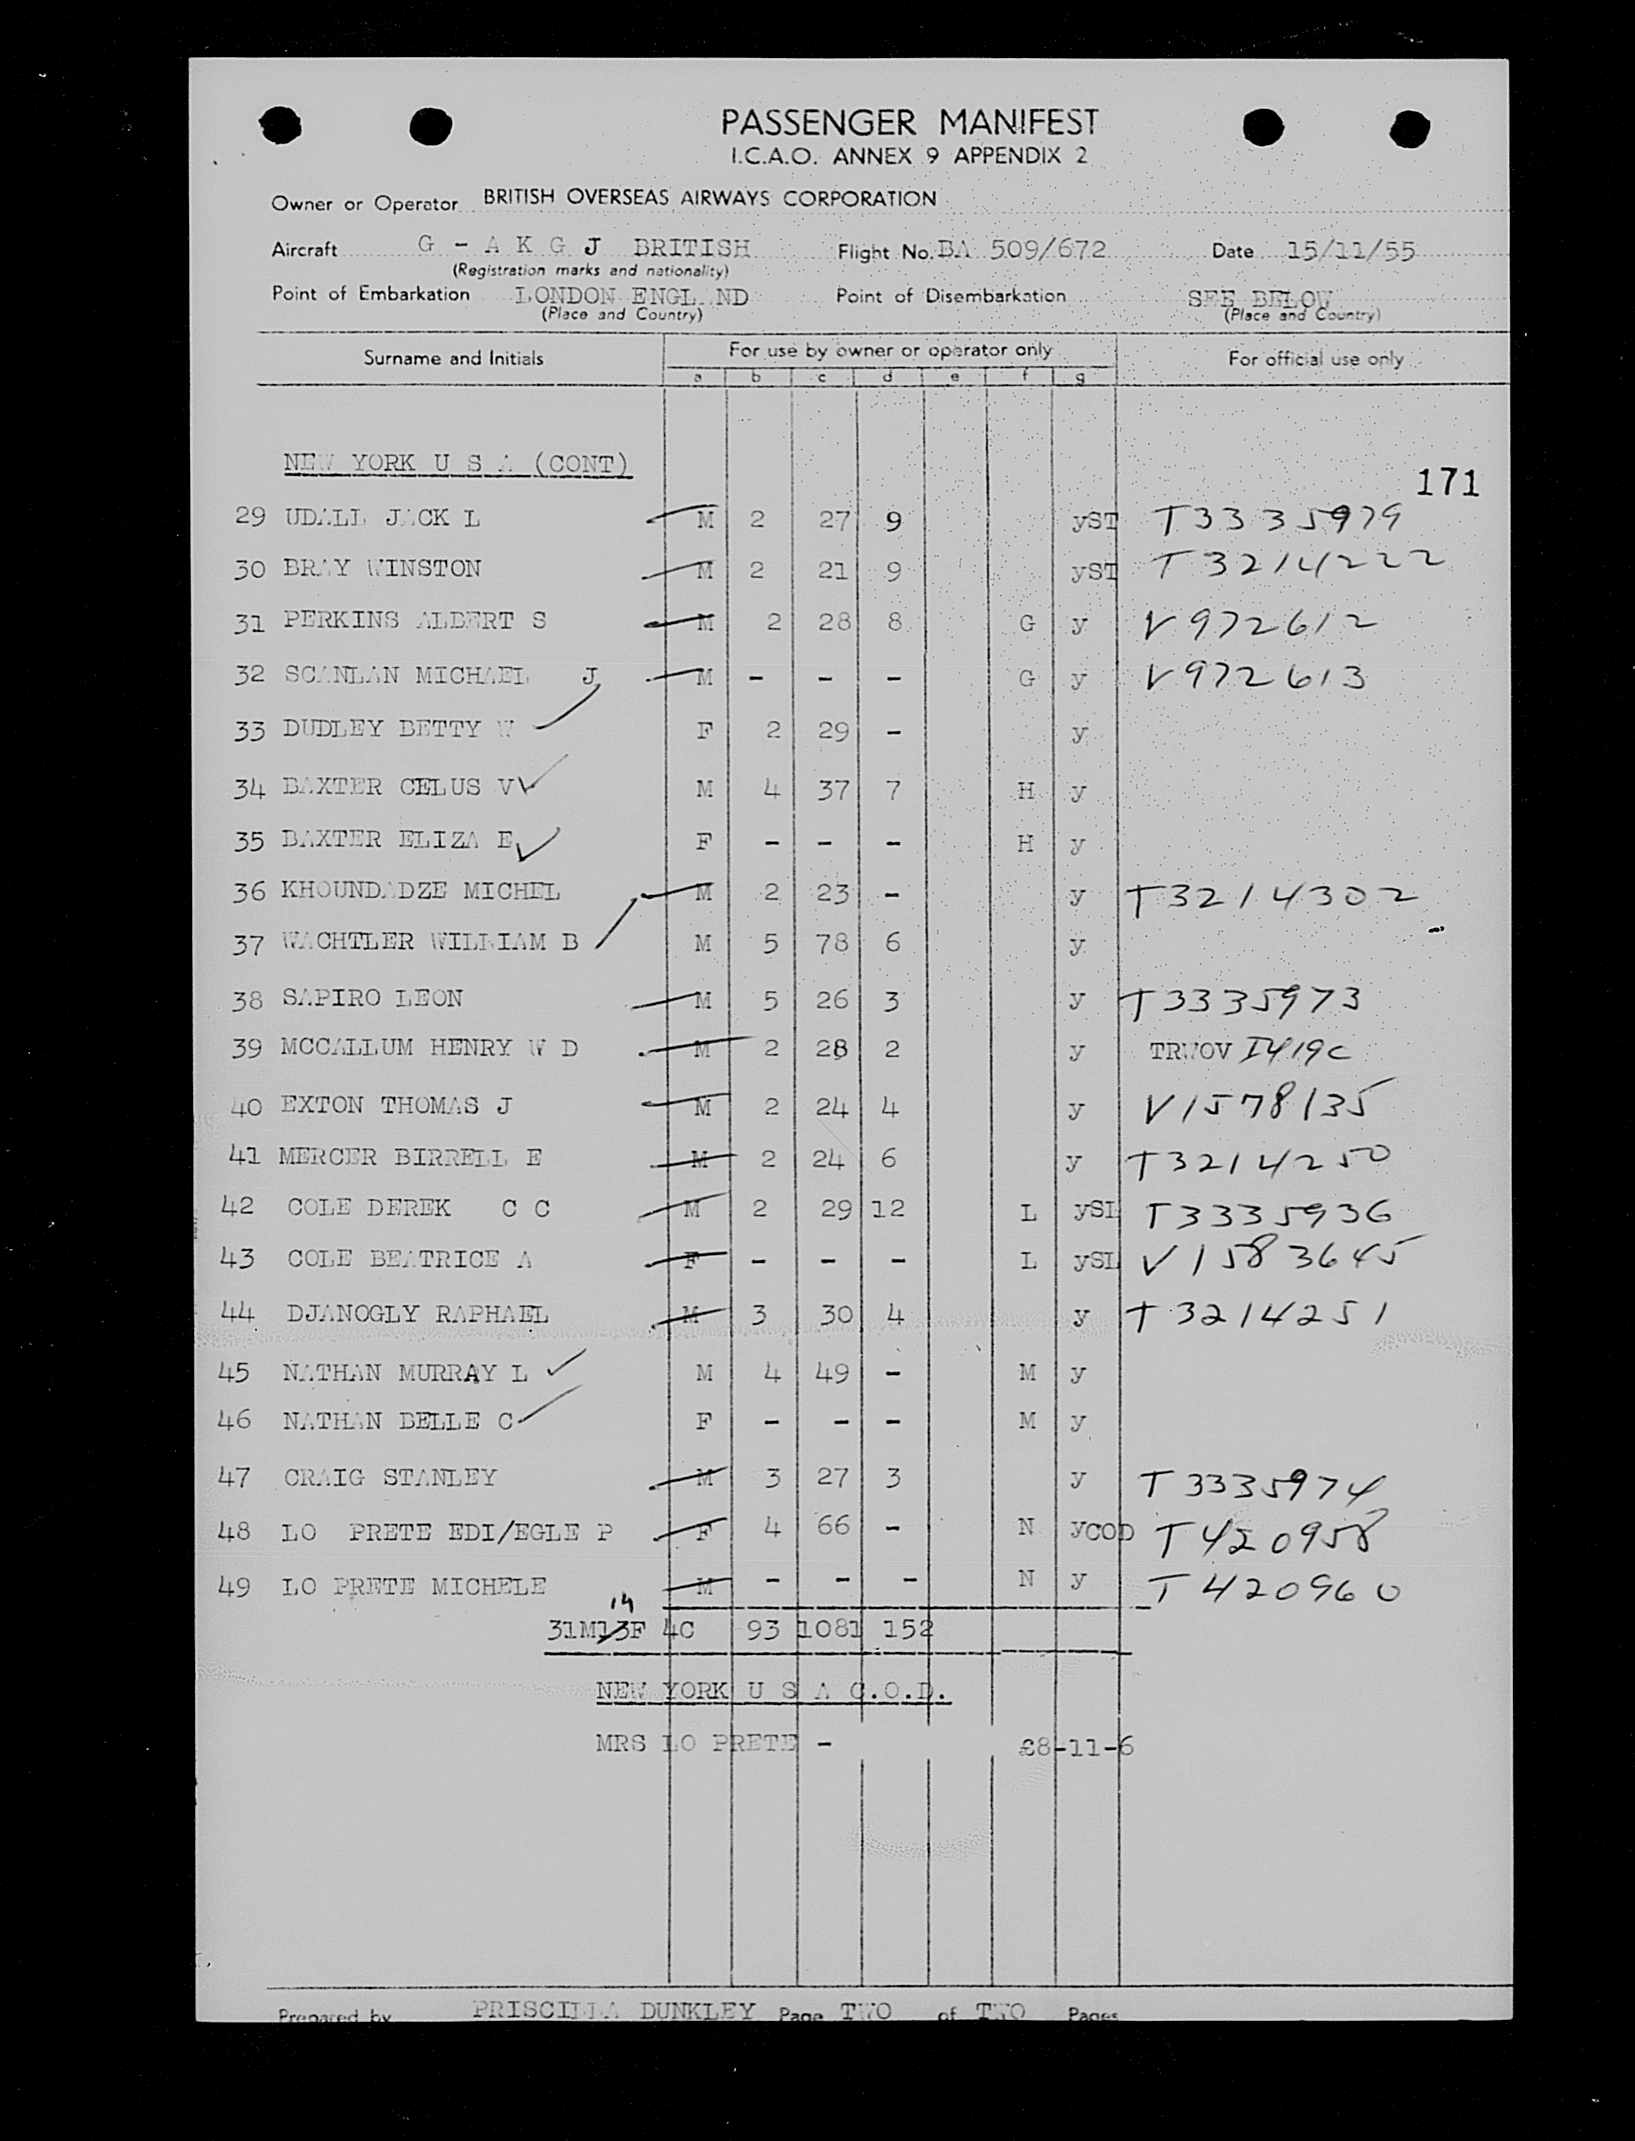 PASSENGER MANIFEST
I.C.A.O. ANNEX 9 APPENDIX 2
Owner or Operator BRITISH OVERSEAS AIRWAYS CORPORATION
Aircraft G - A K G J BRITISH Flight No. BA 509/672 Date 15/11/55
(Registration marks and nationality)
Point of Embarkation LONDON ENGL ND Point of Disembarkation SEE BELOW
(Place and Country) (Place and Country)
Surname and Initials For use by owner or operator only For official use only
a b c d e f g
NEW YORK U S A (CONT)
171
29 UDALL JACK L M 2 27 9 yST T3335979
30 BRAY WINSTON M 2 21 9 yST T3214222
31 PERKINS ALBERT S M 2 28 8 G y V972612
32 SCANLAN MICHAEL J M - - - G y V972613
33 DUDLEY BETTY W F 2 29 - y
34 BAXTER CELUS V M 4 37 7 H y
35 BAXTER ELIZA E F - - - H y
36 KHOUNDADZE MICHEL M 2 23 - y T3214302
37 WACHTLER WILLIAM B M 5 78 6 y
38 SAPIRO LEON M 5 26 3 y T3335973
39 MCCALLUM HENRY W D M 2 28 2 y TRWOV I419C
40 EXTON THOMAS J M 2 24 4 y V1578135
41 MERCER BIRRELL E M 2 24 6 y T3214250
42 COLE DEREK C C M 2 29 12 L ySL T3335936
43 COLE BEATRICE A F - - - L ySL V1583645
44 DJANOGLY RAPHAEL M 3 30 4 y T3214251
45 NATHAN MURRAY L M 4 49 - M y
46 NATHAN BELLE C F - - - M y
47 CRAIG STANLEY M 3 27 3 y T3335974
48 LO PRETE EDI/EGLE P F 4 66 - N yCOD T420958
49 LO PRETE MICHELE M - - - N y T420960
14
31M13F 4C 93 1081 152
NEW YORK U S A C.O.D.
MRS LO PRETE - £8-11-6
Prepared by PRISCILLA DUNKLEY Page TWO of TWO Pages